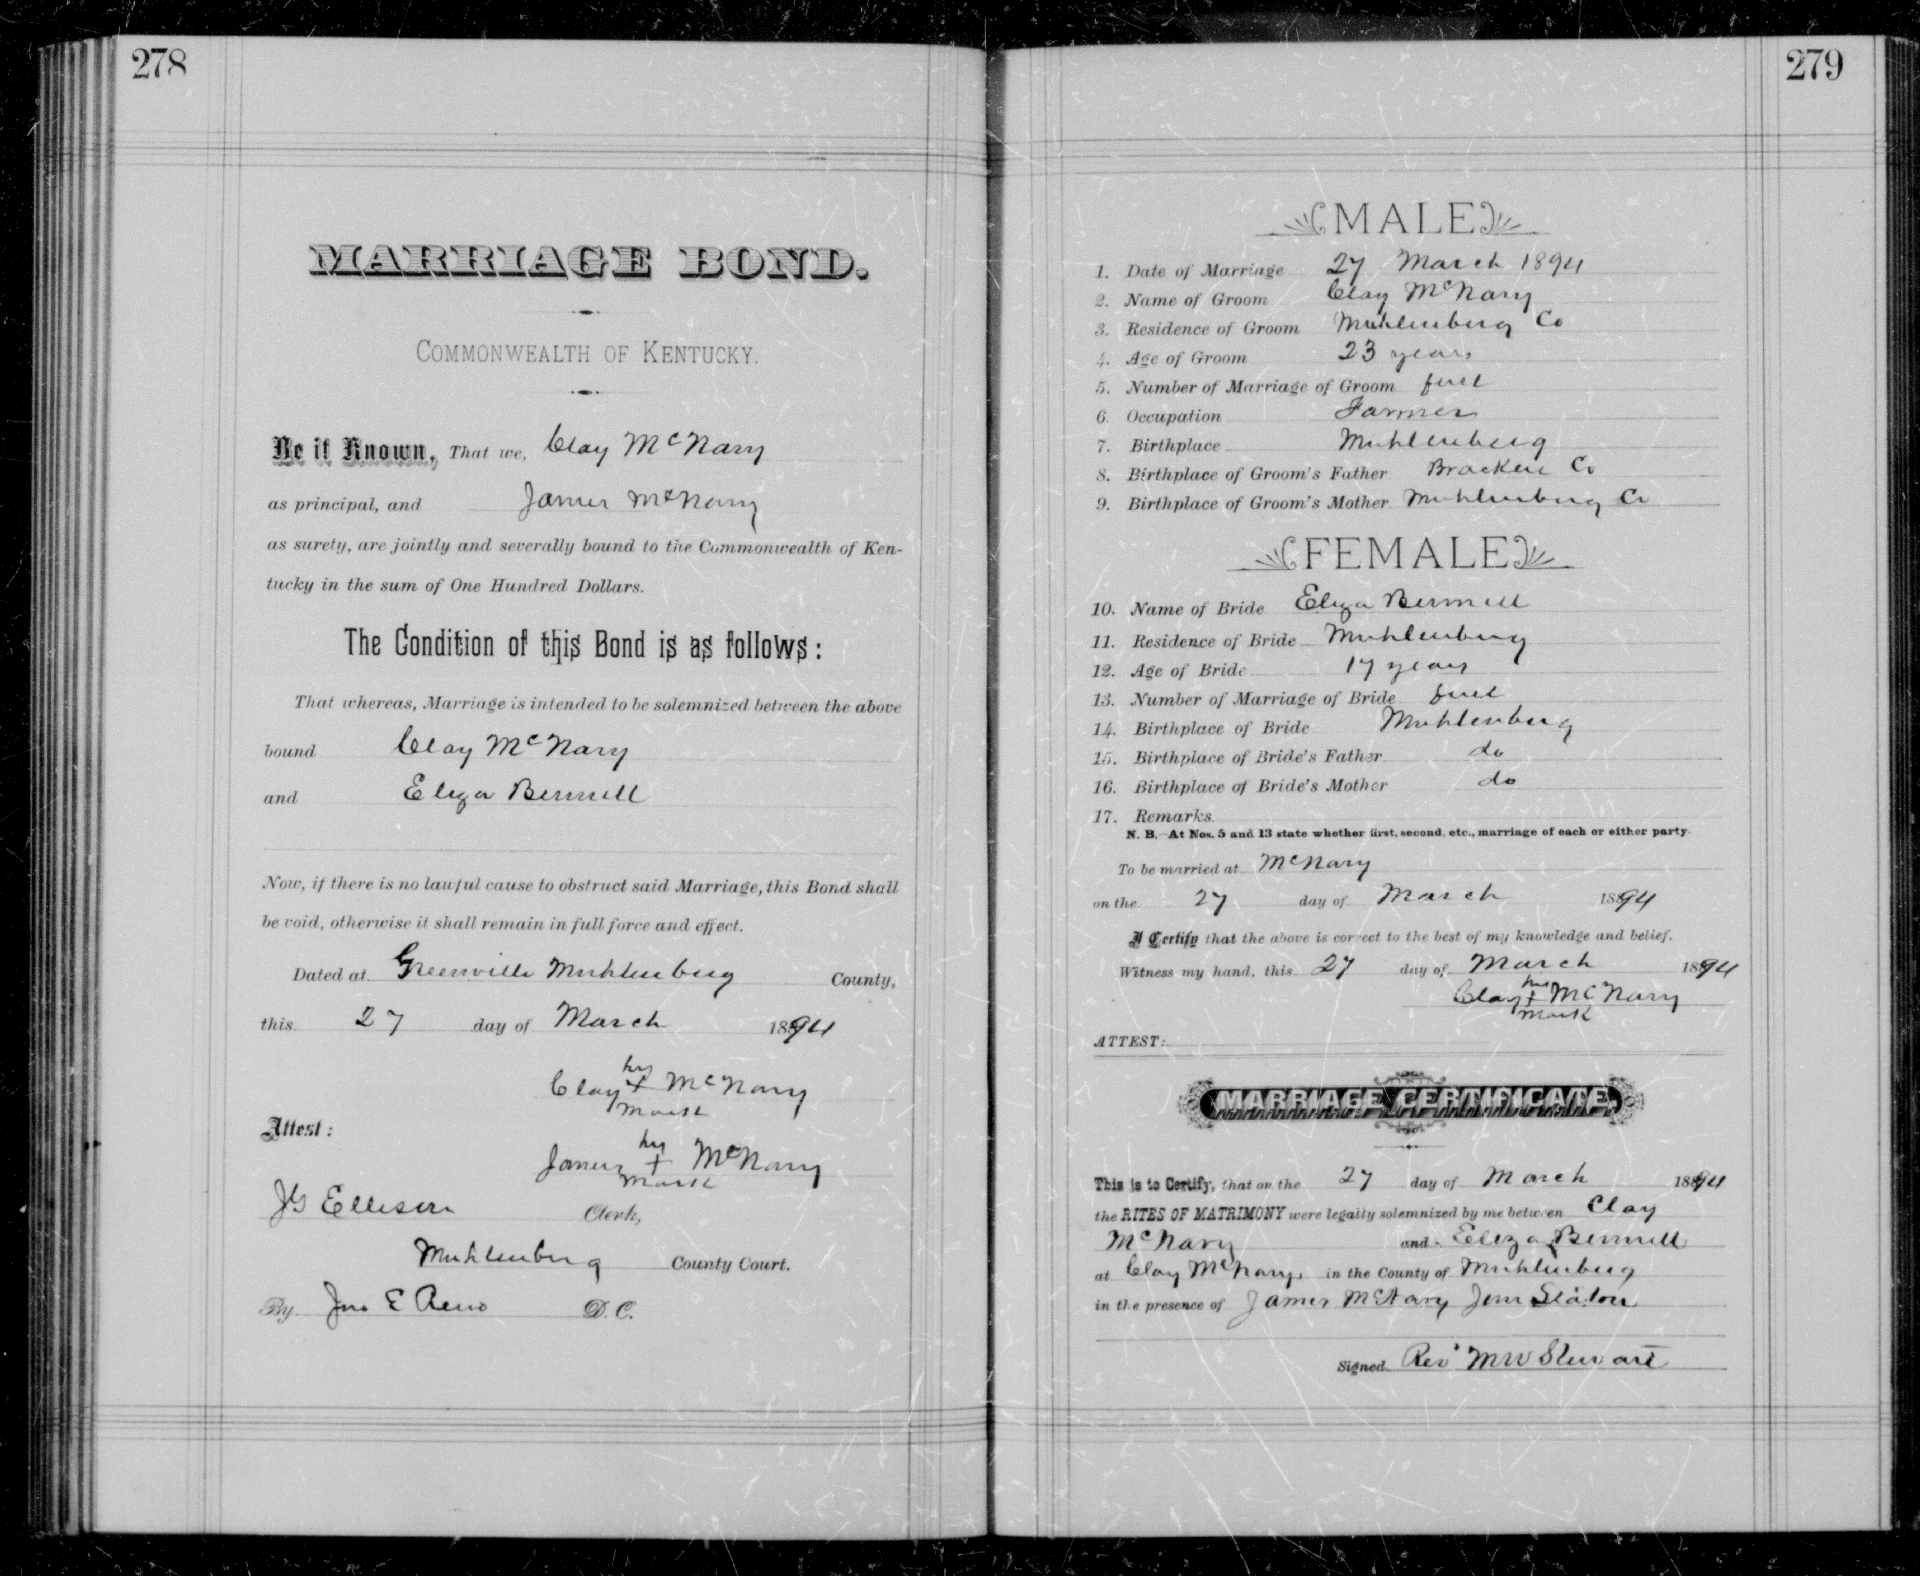 278
MARRIAGE BOND.
COMMONWEALTH OF KENTUCKY.
Be it Known, That we, Clay McNary
as principal, and James McNary
as surety, are jointly and severally bound to the Commonwealth of Ken-
tucky in the sum of One Hundred Dollars.
The Condition of this Bond is as follows:
That whereas, Marriage is intended to be solemnized between the above
bound Clay McNary
and Eliza Bennett
Now, if there is no lawful cause to obstruct said Marriage, this Bond shall
be void, otherwise it shall remain in full force and effect.
Dated at Greenville Muhlenberg County,
this 27 day of March 1894
his
Clay + McNary
mark
Attest:
his
James + McNary
mark
JG Ellison Clerk,
Muhlenberg County Court.
By Jno E Reno D. C.
279
MALE
1. Date of Marriage 27 March 1894
2. Name of Groom Clay McNary
3. Residence of Groom Muhlenberg Co
4. Age of Groom 23 years
5. Number of Marriage of Groom first
6. Occupation Farmer
7. Birthplace Muhlenberg
8. Birthplace of Groom's Father Bracken Co
9. Birthplace of Groom's Mother Muhlenberg Co
FEMALE
10. Name of Bride Eliza Bennett
11. Residence of Bride Muhlenberg
12. Age of Bride 17 years
13. Number of Marriage of Bride first
14. Birthplace of Bride Muhlenberg
15. Birthplace of Bride's Father do
16. Birthplace of Bride's Mother do
17. Remarks
N. B.—At Nos. 5 and 13 state whether first, second, etc., marriage of each or either party.
To be married at McNary
on the 27 day of March 1894
I Certify that the above is correct to the best of my knowledge and belief.
Witness my hand, this 27 day of March 1894
his
Clay + McNary
mark
ATTEST:
MARRIAGE CERTIFICATE.
This is to Certify, that on the 27 day of March 1894
the RITES OF MATRIMONY were legally solemnized by me between Clay
McNary and Eliza Bennett
at Clay McNarys in the County of Muhlenberg
in the presence of James McNary Slaton
Signed Rev MW Stewart